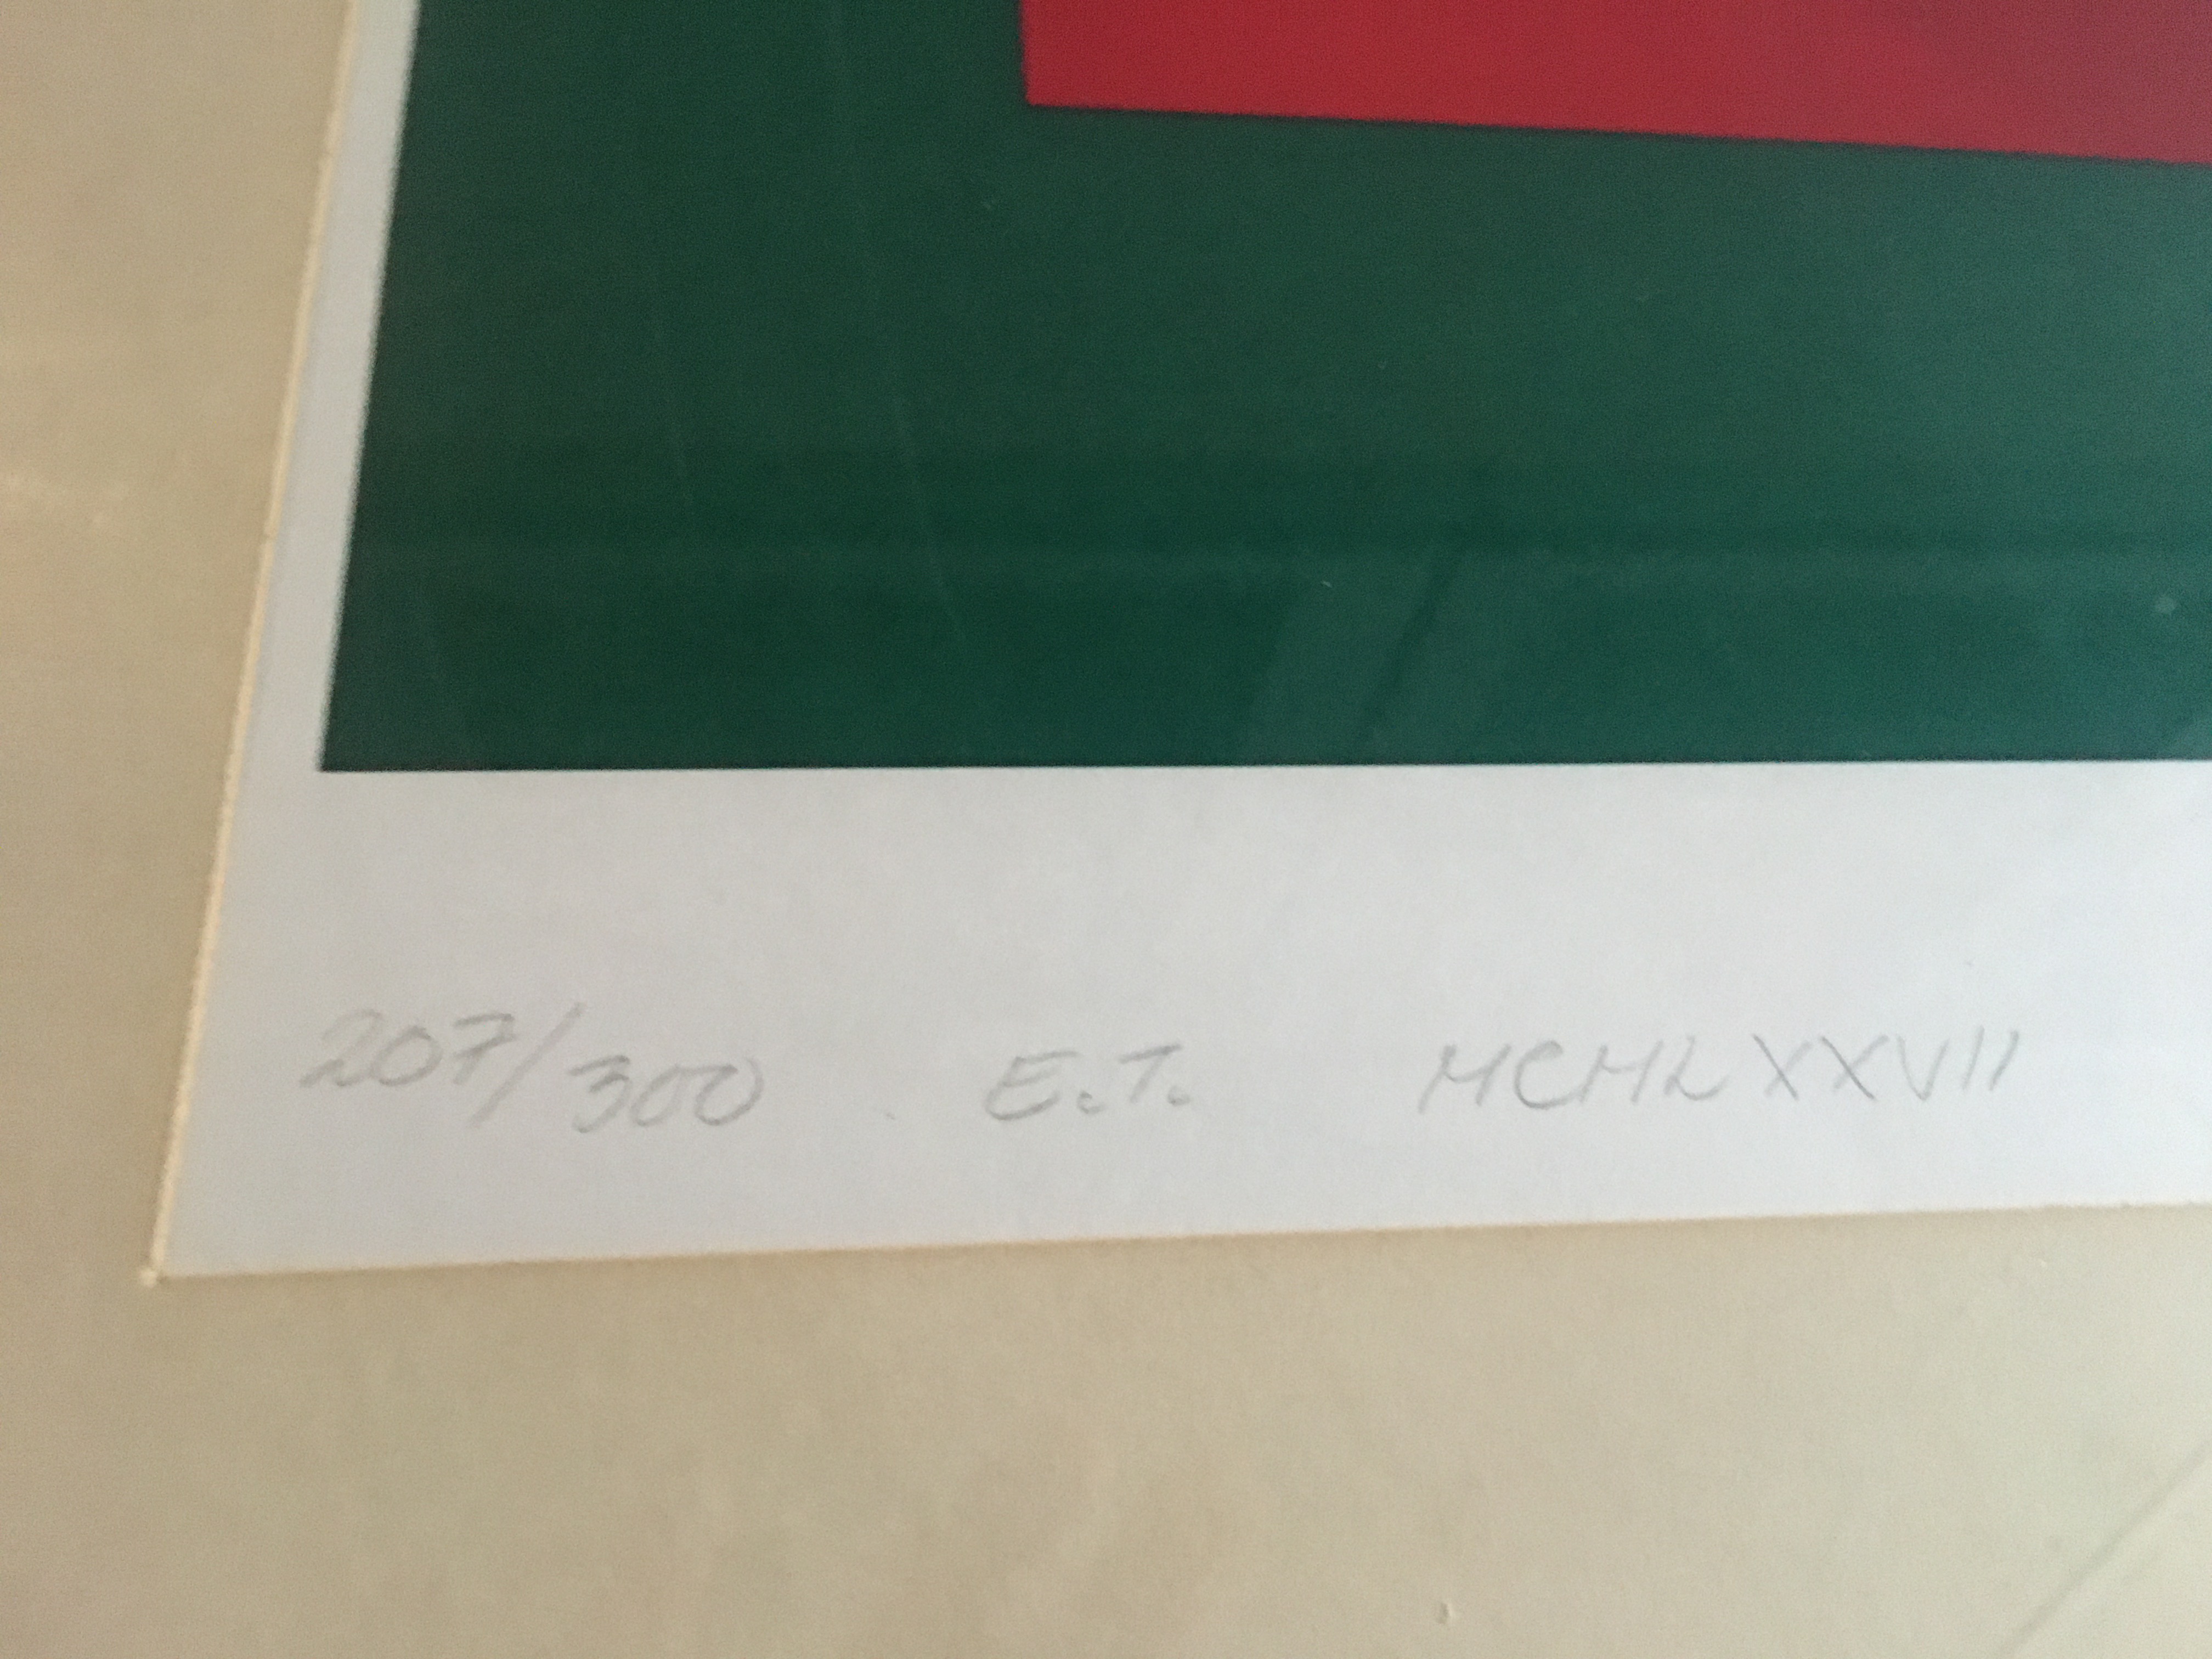 207/300 E.T. MCMLXXVII